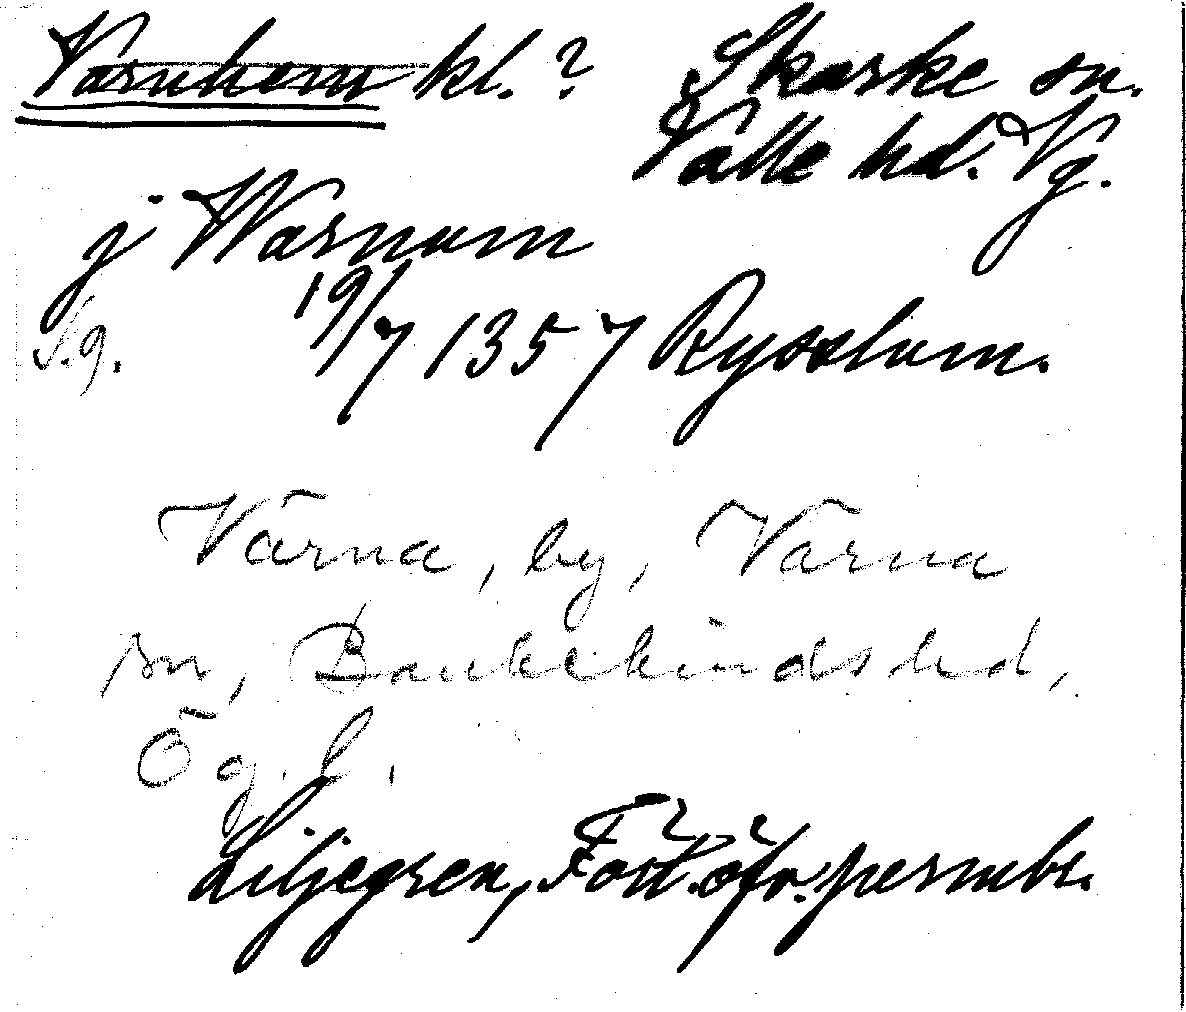 Varnhem kl. ? Skarke sn.
Valle hd. Vg.
j Warnum
19/7 1357 Rysslum.
S.g.
Värna, by, Värna
sn, Bankekinds hd,
Ög. l.
Liljegren, Fört. öfv. permbr.